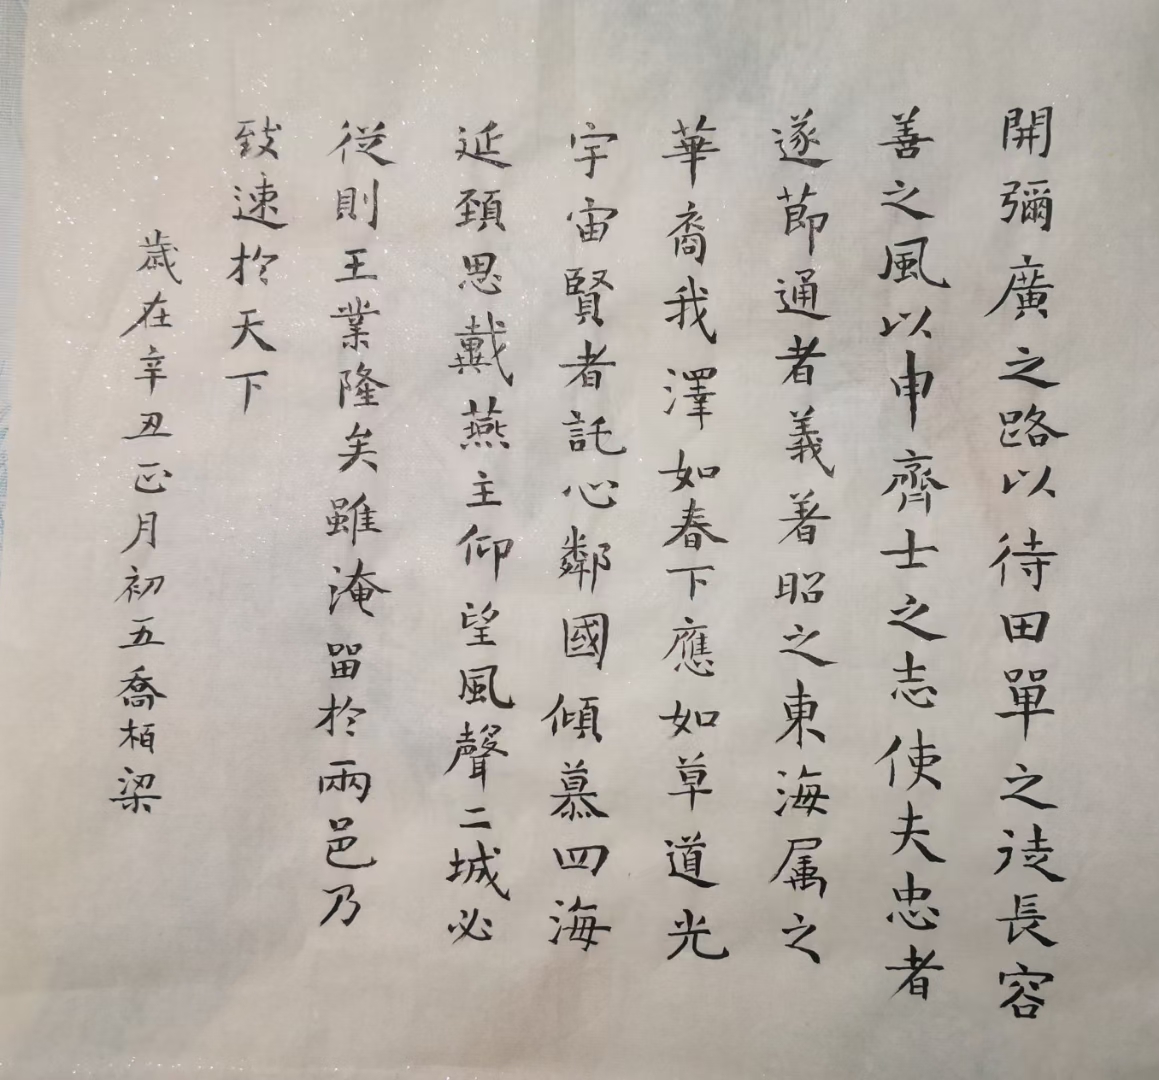 開彌廣之路以待田單之徒長容
善之風以申齊士之志使夫忠者
遂節通者義著昭之東海属之
華裔我澤如春下應如草道光
宇宙賢者託心鄰國傾慕四海
延頸思戴燕主仰望風聲二城必
從則王業隆矣雖淹留於兩邑乃
致速於天下
歲在辛丑正月初五喬栢梁